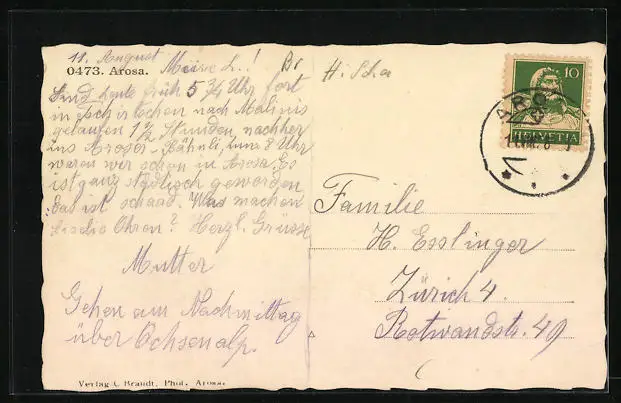 11. August
0473. Arosa.
Meine L.!
Sind heute früh 5 3/4 Uhr fort
in Tschiertschen nach Molinis
gelaufen 1 1/2 Stunden, nachher
ins Aroser-Bähnli, um 8 Uhr
waren wir schon in Arosa. Es
ist ganz städtisch geworden
das ist schaad. Was machen
Ohren? Herzl. Grüsse
Mutter
Gehen am Nachmittag
über Ochsenalp.
Verlag C. Brandt, Phot. Arosa.
10
HELVETIA
AROSA
Familie
H. Esslinger
Zürich 4.
Rotwandstr. 49